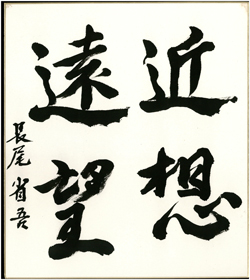 近想
遠望
長尾省吾